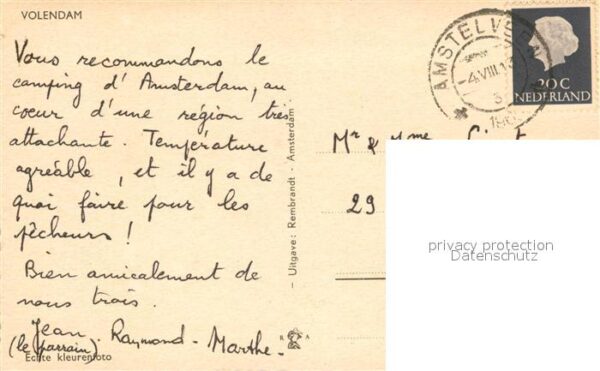 VOLENDAM
Vous recommandons le
camping d'Amsterdam, au
coeur d'une région très
attachante. Température
agréable, et il y a de
quoi faire pour les
pêcheurs !
Bien amicalement de
nous trois.
Jean - Raymond - Marthe -
(le parrain)
Echte kleurenfoto
Uitgave: Rembrandt - Amsterdam
R A
AMSTELVEEN
-4.VIII.13
3
20 C
NEDERLAND
Mr & Mme
29
privacy protection
Datenschutz